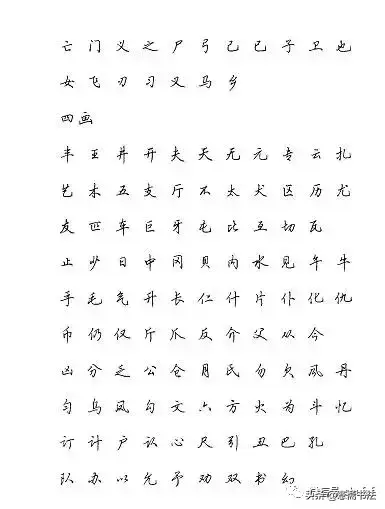 亡 门 义 之 尸 弓 己 已 子 卫 也
女 飞 刃 习 叉 马 乡
四画
丰 王 井 开 夫 天 无 元 专 云 扎
艺 木 五 支 厅 不 太 犬 区 历 尤
友 匹 车 巨 牙 屯 比 互 切 瓦
止 少 日 中 冈 贝 内 水 见 午 牛
手 毛 气 升 长 仁 什 片 仆 化 仇
币 仍 仅 斤 爪 反 介 父 从 今
凶 分 乏 公 仓 月 氏 勿 欠 风 丹
匀 乌 凤 勾 文 六 方 火 为 斗 忆
订 计 户 认 心 尺 引 丑 巴 孔
队 办 以 允 予 劝 双 书 幻
头条 书法